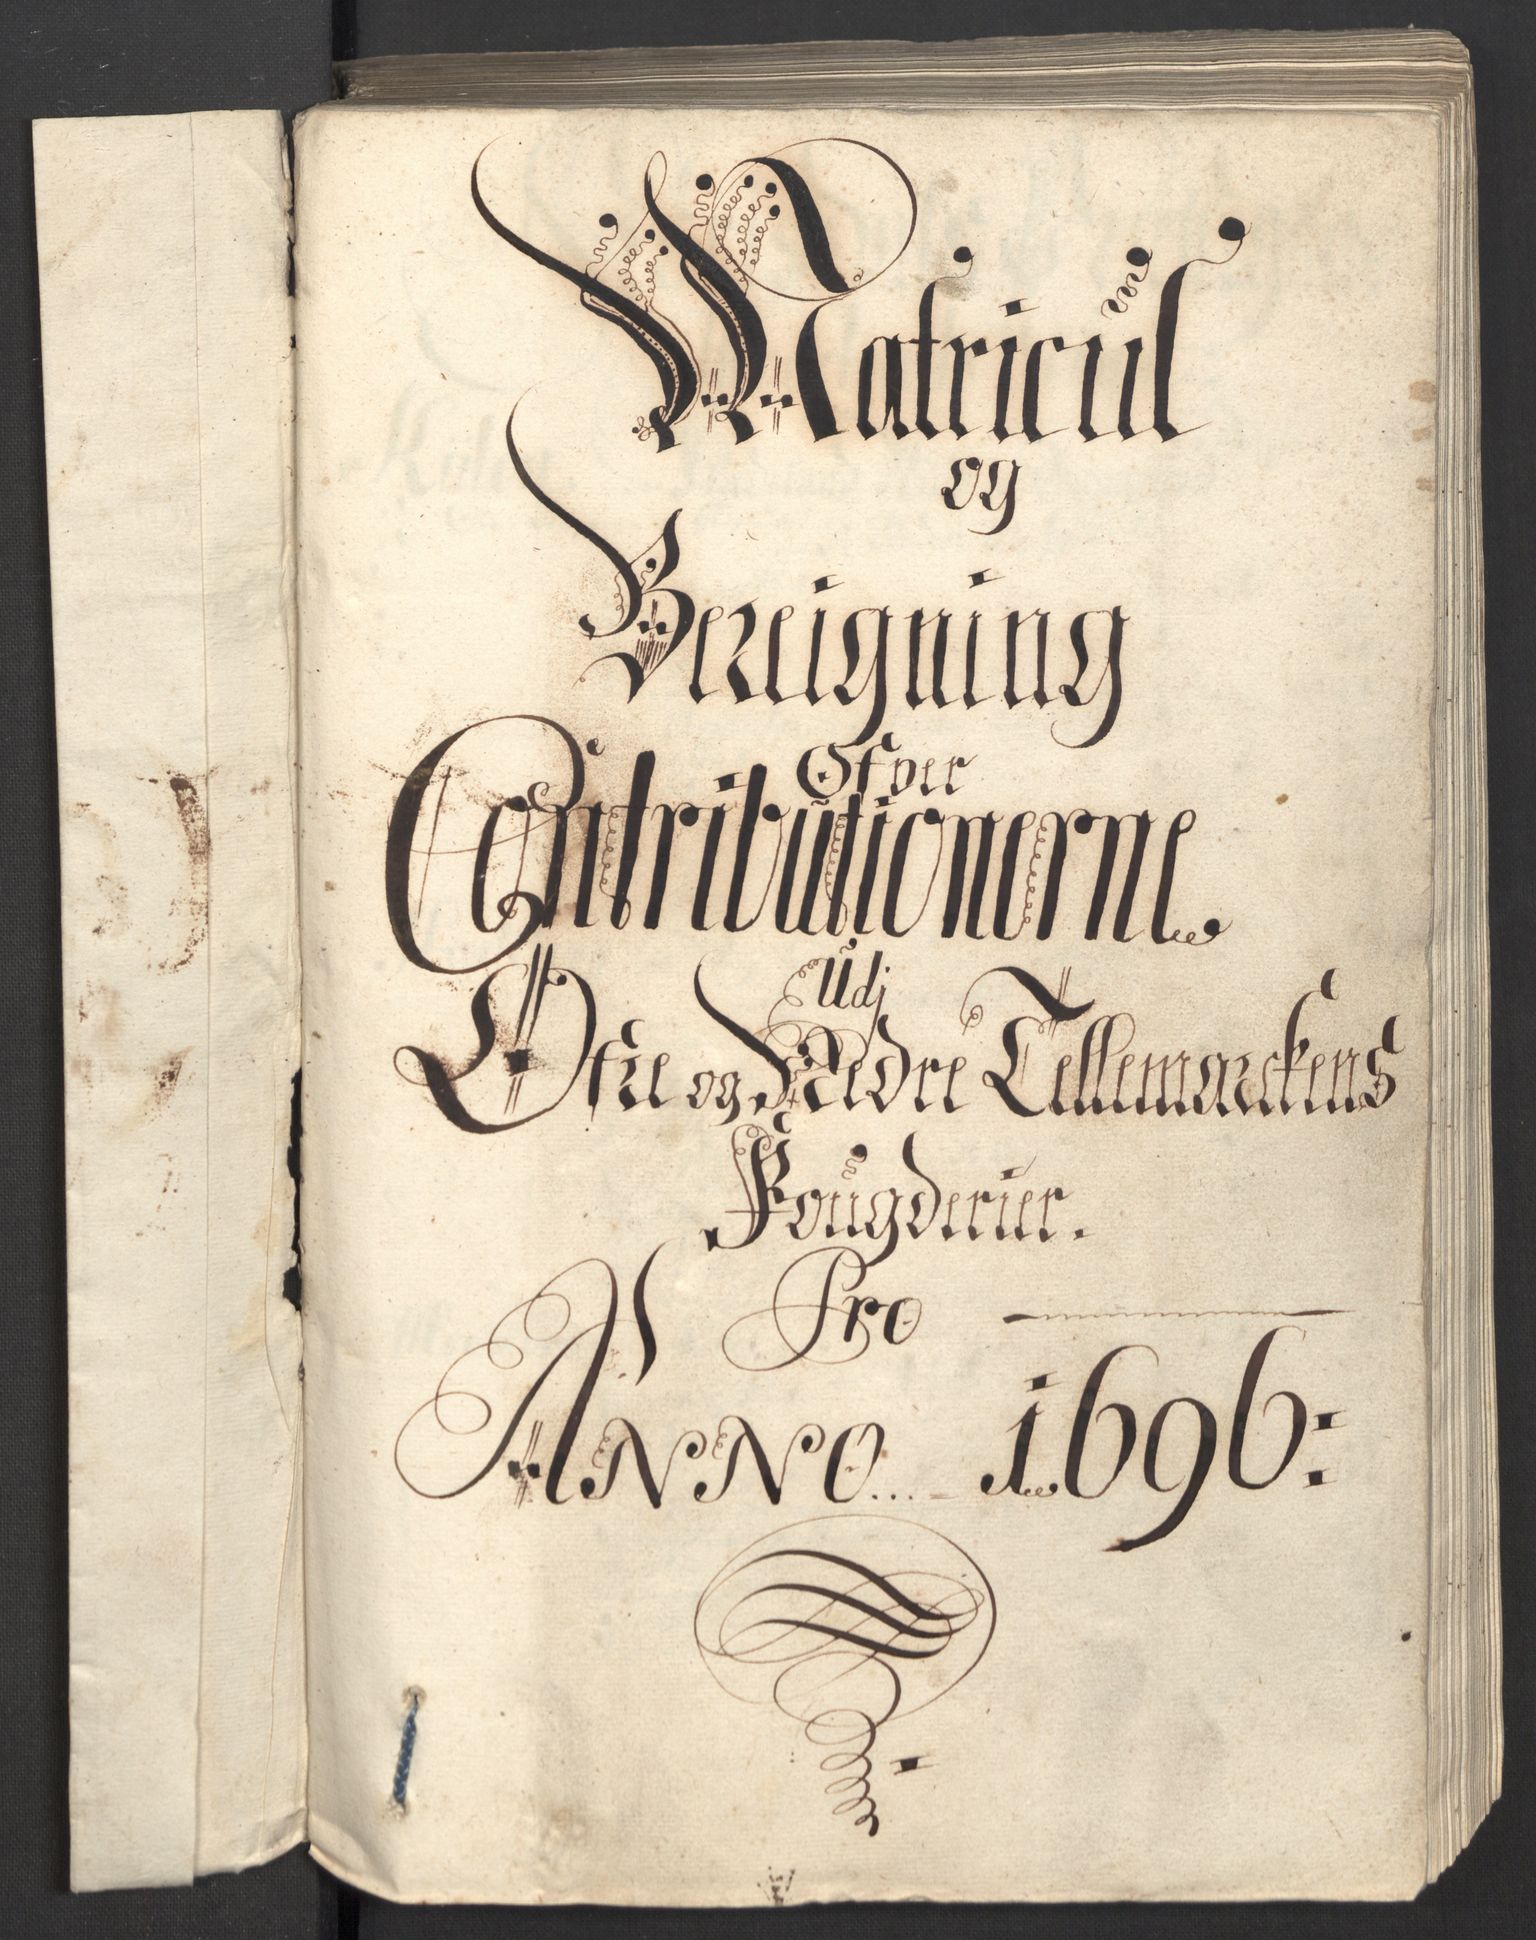 Matricul
og
Bereigning
Ofver
Contributionerne
Udj
Øfre og Nedre Tellemarckens
Fougderier.
Pro
ANNO... 1696: